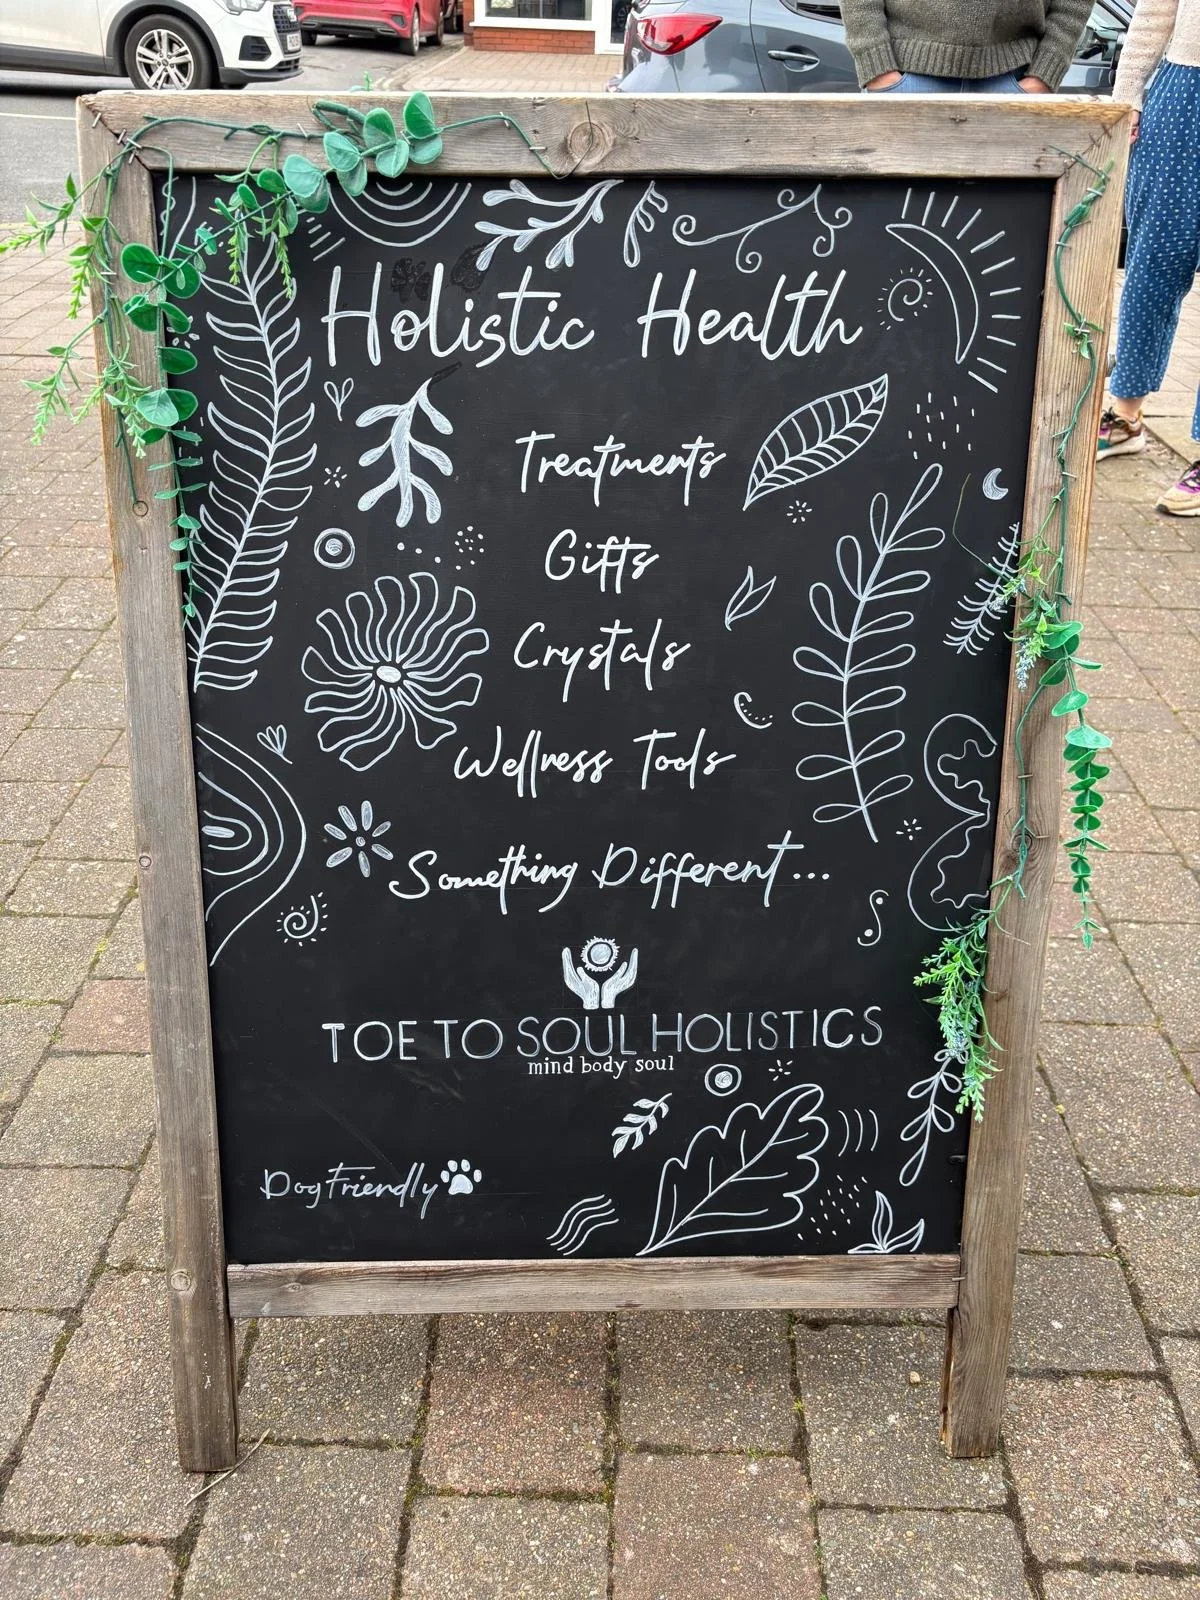 Holistic Health
Treatments
Gifts
Crystals
Wellness Tools
Something Different...
TOE TO SOUL HOLISTICS
mind body soul
Dog Friendly